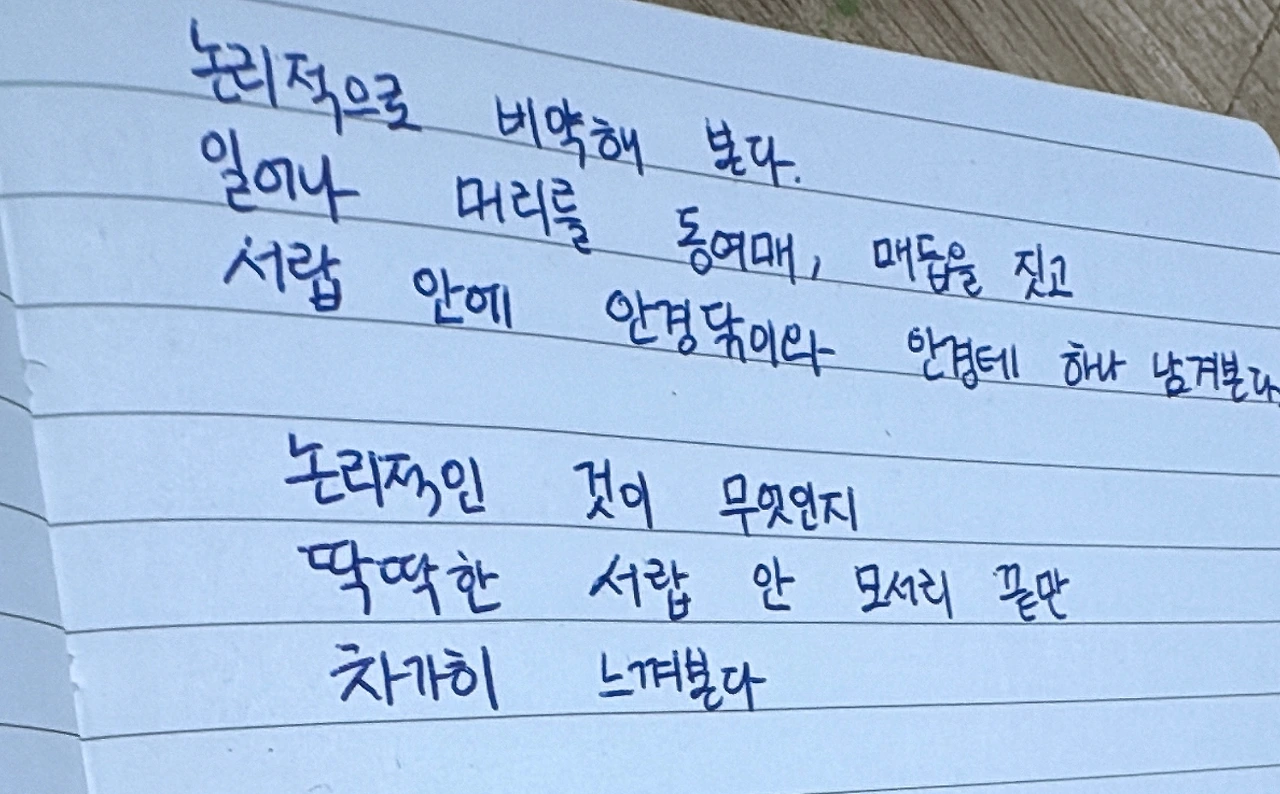 논리적으로 비약해 본다.
일어나 머리를 동여매, 매듭을 짓고
서랍 안에 안경닦이와 안경테 하나 남겨본다.
논리적인 것이 무엇인지
딱딱한 서랍 안 모서리 끝만
차가히 느껴본다